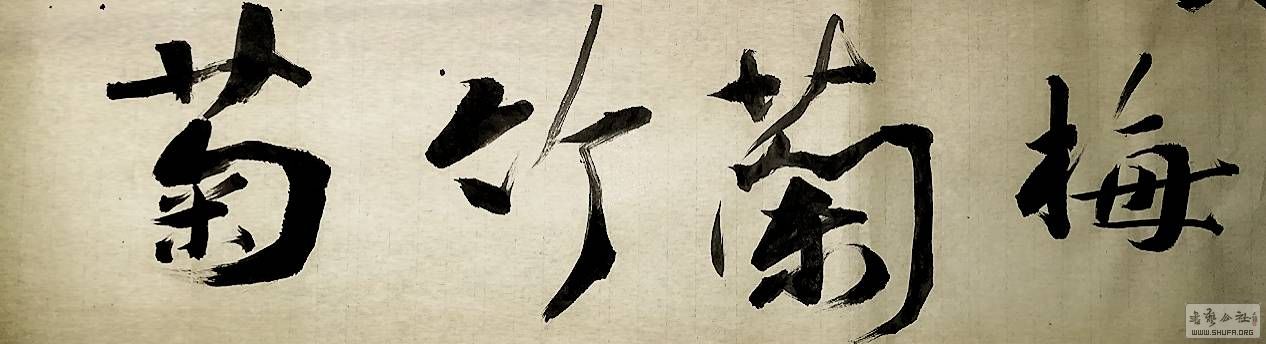 梅蘭竹菊
书艺公社
WWW.SHUFA.ORG